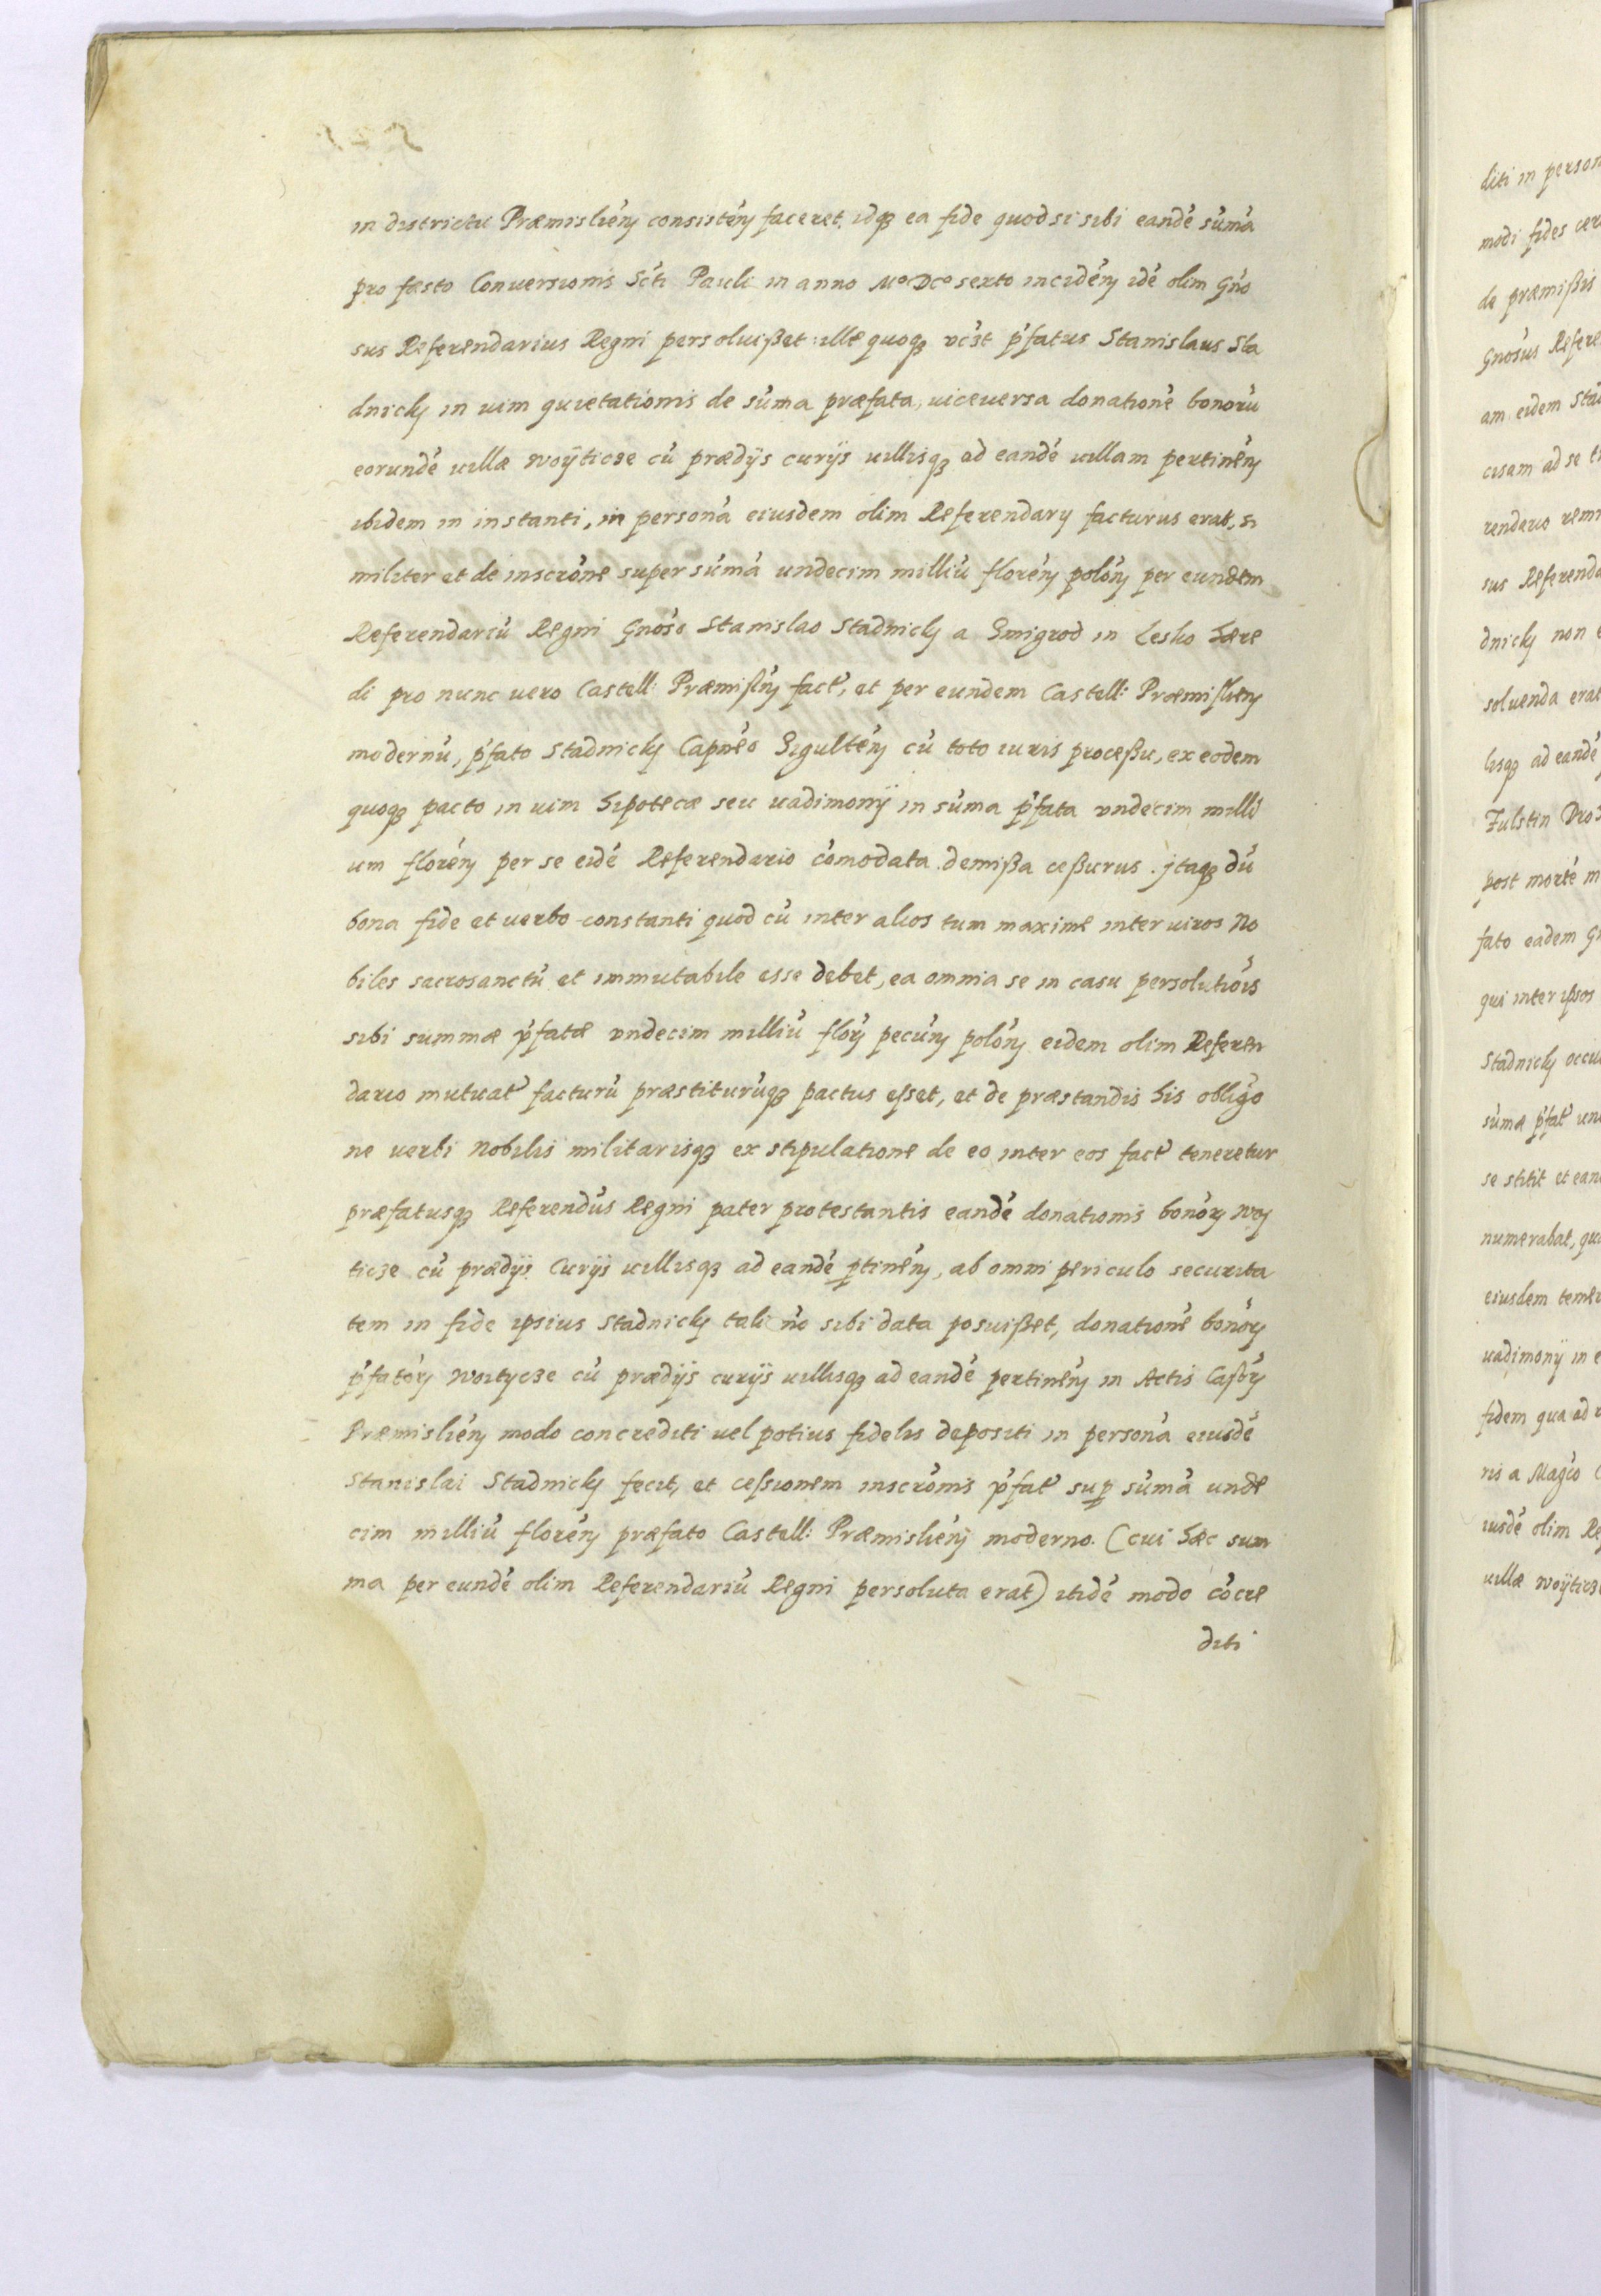 in districtu Præmislien̄ consisten̄ faceret. idq́ꝫ ea fide quod si sibi eandē sūmā
pro fæsto Conuersionis Sc̄ti Pauli in anno Mº DCº sexto inciden̄ idē olim Gn̄o
sus Referendarius Regni persoluißet: ille quoqꝫ vcꝫt p̄fatus Stanislaus Sta
dnicky in uim quietationis de sūma præfata, uiceuersa donationē bonorū
eorundē uillæ woÿticze cū prædÿs curÿs uillisqꝫ ad eandē uillam pertinen̄
ibidem in instanti, in personā eiusdem olim Referendary facturus erat, si
militer et de inscrōne super sūmā undecim milliū floren̄ polon̄ per eundem
Referendariū Regni Gnōso Stanislao Stadnicky a Smigrod in Lesko hære
di pro nunc uero Castell: Præmisln̄ fact̄, et per eundem Castell: Præmislien̄
modernū, p̄fato Stadnicky Capnēo Sigulten̄ cū toto iuris proceßu, ex eodem
quoqꝫ pacto in uim hipotecæ seu uadimonÿ in sūma p̄fata vndecim milli
um floren̄ per se eidē Referendario cōmodata demißa ceßurus. jtaqꝫ dū
bona fide et uerbo constanti quod cū inter alios tum maxime inter uiros No
biles sacrosanctū et immutabile esse debet, ea omnia se in casu persolutiōis
sibi summæ p̄fatæ vndecim milliū flor̄ pecun̄ polon̄ eidem olim Referen
dario mutuat̄ facturū præstiturūqꝫ pactus esset, et de præstandis his obligō
ne uerbi Nobilis militarisqꝫ ex stipulatione de eo inter eos fact̄ teneretur
præfatusqꝫ Referendūs Regni pater protestantis eandē donationis bonor̄ woy
ticze cū prædÿs Curÿs uillisqꝫ ad eandē ꝑtinen̄, ab omni periculo securita
tem in fide ipsius Stadnicky tali m̄o sibi data posuißet, donationē bonor̄
p̄fator̄ Woitycze cū prædÿs curÿs uillisqꝫ ad eandē pertinen̄ in Actis Castr̄
Præmislien̄ modo concrediti uel potius fidelis depositi in personā eiusdē
Stanislai Stadnicky fecit, et cessionem inscrōnis p̄fat̄ suꝑ sūmā unde
cim milliū floren̄ præfato Castell: Præmislien̄ moderno. (cui hæc sum
ma per eundē olim Referendariū Regni persoluta erat) itidē modo cōcre
diti